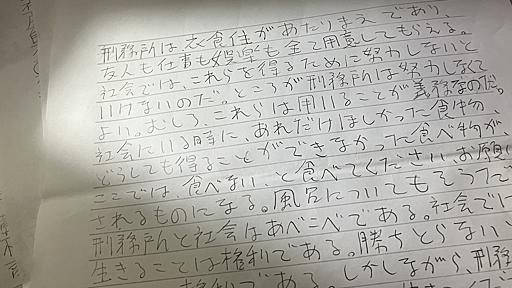 刑務所は、衣食住があたりまえであり、
友人も仕事も娯楽も全て用意してもらえる。
社会では、これらを得るために努力しないと
いけないのだ。ところが刑務所は努力しなくて
よい。むしろ、これらは用いることが義務なのだ。
社会にいる時に、あれだけほしかった食物、
どうしても得ることができなかった食べ物が、
ここでは、食べない、と食べてください、お願い
されるものになる。風呂についてもそうだ
刑務所と社会はあべこべである。社会では
生きることは権利である。勝ちとらない
権利である。しかしながら、刑務